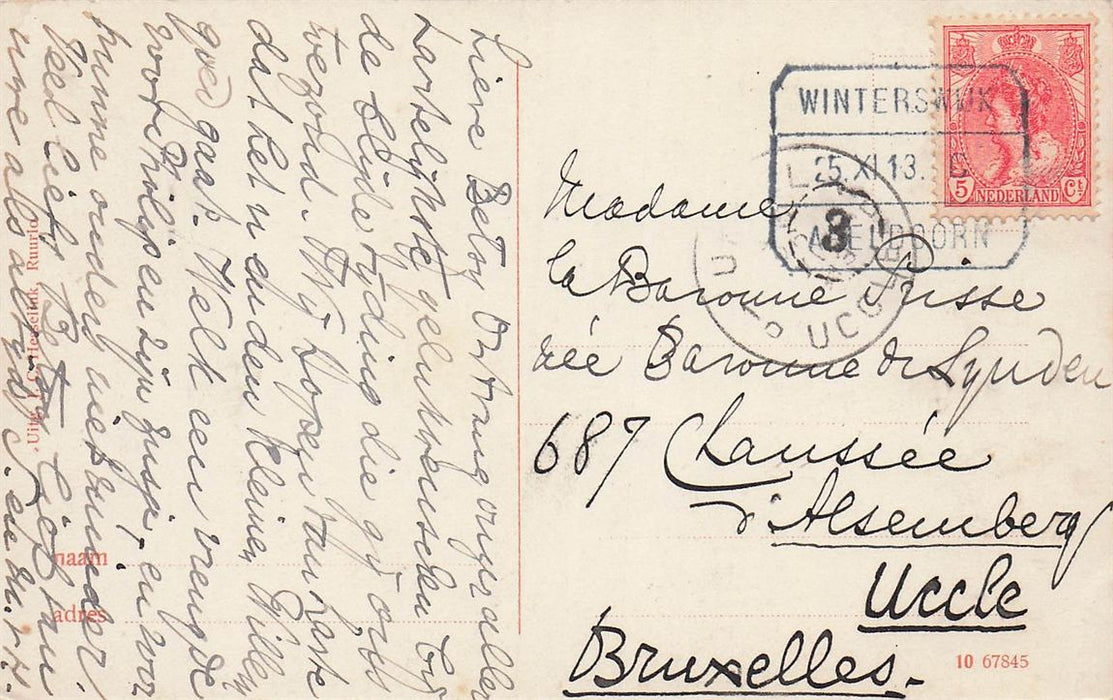 Lieve Betsy Ontvang onze aller
hartelijkste gelukwenschen bij
de blijde tijding die gij ons
toezond. Wij hopen van harte
dat het u en den kleinen Willy
goed gaat. Welk een vreugde
voor Philip en zijn zusje, en voor
ouders niet minder.
Veel liefs Betsy lief van
uwe als altijd
Uitg. Hesselink, Ruurlo
naam
adres
WINTERSWIJK
25.XI.13.
APELDOORN
3
UCCLE
5 NEDERLAND Ct
Madame
la Baronne
née Baronne de Lynden
687 Chaussée
d'Alsemberg
Uccle
Bruxelles.
10 67845